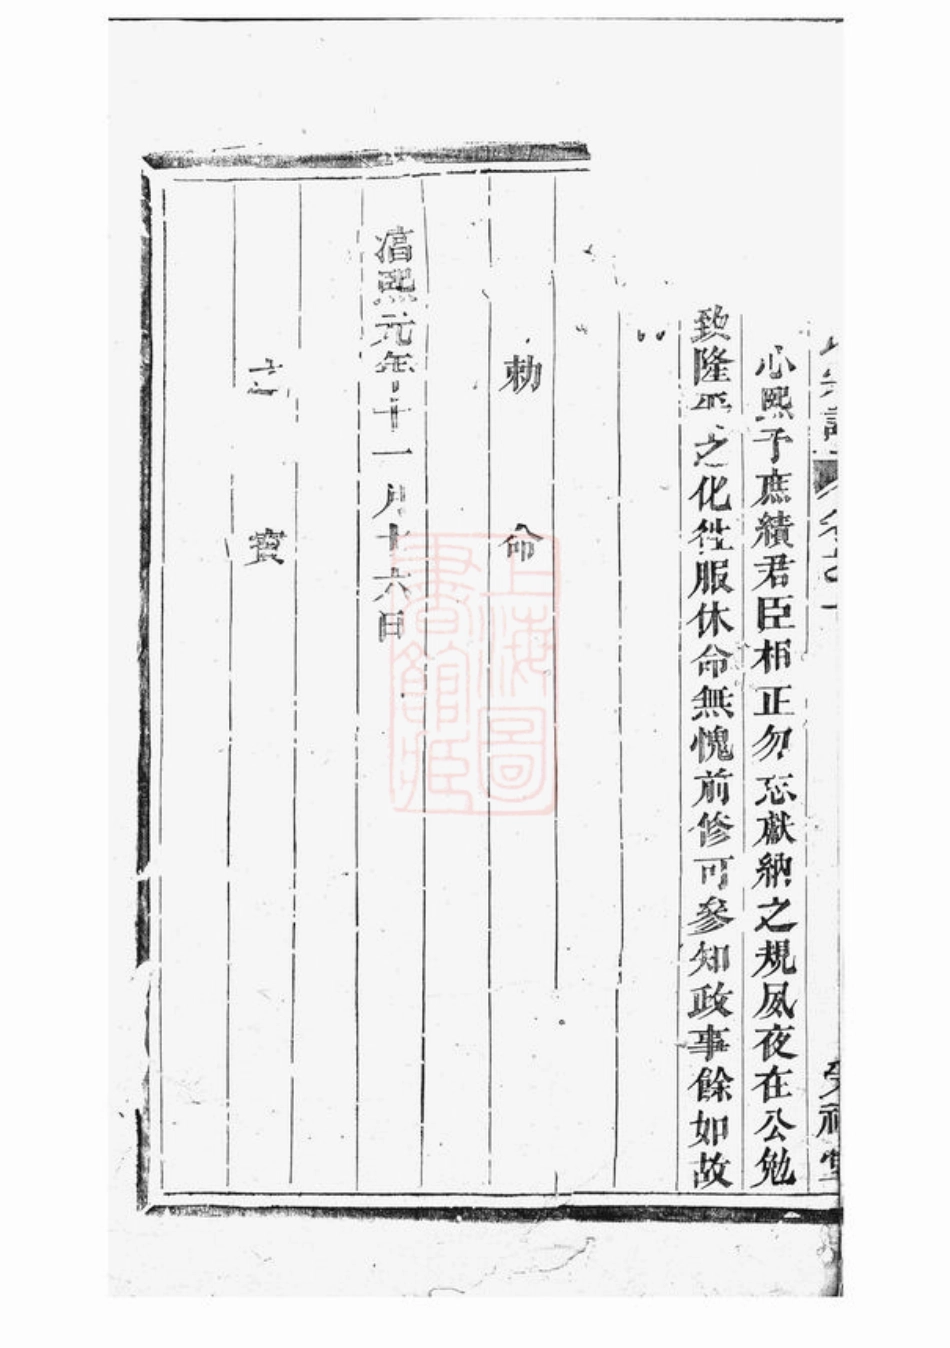 心熙予庶績君臣相正勿忘獻納之規夙夜在公勉
致隆平之化往服休命無愧前修可參知政事餘如故
勅命
熙元年十一月十六日
之寶
上海圖書館藏